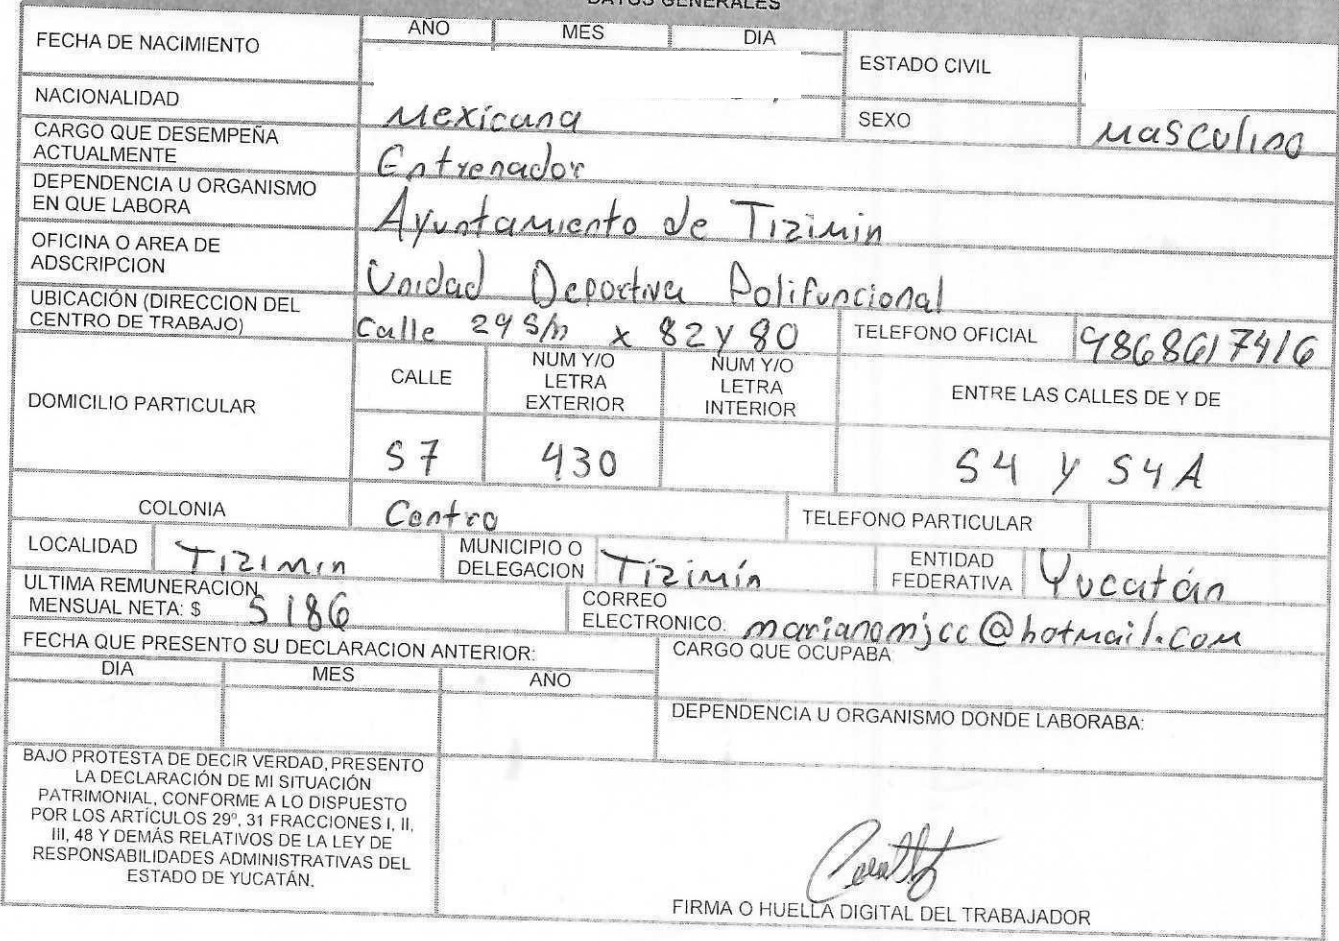 DATOS GENERALES
FECHA DE NACIMIENTO AÑO MES DIA ESTADO CIVIL
NACIONALIDAD Mexicana SEXO Masculino
CARGO QUE DESEMPEÑA
ACTUALMENTE Entrenador
DEPENDENCIA U ORGANISMO
EN QUE LABORA Ayuntamiento de Tizimin
OFICINA O AREA DE
ADSCRIPCION Unidad Deportiva Polifuncional
UBICACIÓN (DIRECCION DEL
CENTRO DE TRABAJO) Calle 29 S/n x 82 y 80 TELEFONO OFICIAL 9868617416
DOMICILIO PARTICULAR CALLE NUM Y/O
LETRA
EXTERIOR NUM Y/O
LETRA
INTERIOR ENTRE LAS CALLES DE Y DE
57 430 54 y 54A
COLONIA Centro TELEFONO PARTICULAR
LOCALIDAD Tizimin MUNICIPIO O
DELEGACION Tizimín ENTIDAD
FEDERATIVA Yucatán
ULTIMA REMUNERACION
MENSUAL NETA: $ 5186 CORREO
ELECTRONICO: marianomjcc@hotmail.com
FECHA QUE PRESENTO SU DECLARACION ANTERIOR: CARGO QUE OCUPABA
DIA MES AÑO
DEPENDENCIA U ORGANISMO DONDE LABORABA:
BAJO PROTESTA DE DECIR VERDAD, PRESENTO
LA DECLARACIÓN DE MI SITUACIÓN
PATRIMONIAL, CONFORME A LO DISPUESTO
POR LOS ARTÍCULOS 29º, 31 FRACCIONES I, II,
III, 48 Y DEMÁS RELATIVOS DE LA LEY DE
RESPONSABILIDADES ADMINISTRATIVAS DEL
ESTADO DE YUCATÁN.
FIRMA O HUELLA DIGITAL DEL TRABAJADOR